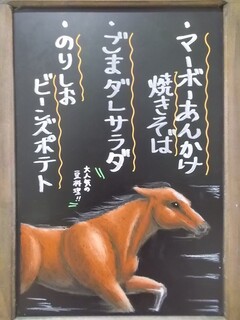 ・マーボーあんかけ
焼きそば
・ごまダレサラダ
・のりしお
ビーンズポテト
大人気の
豆料理!!